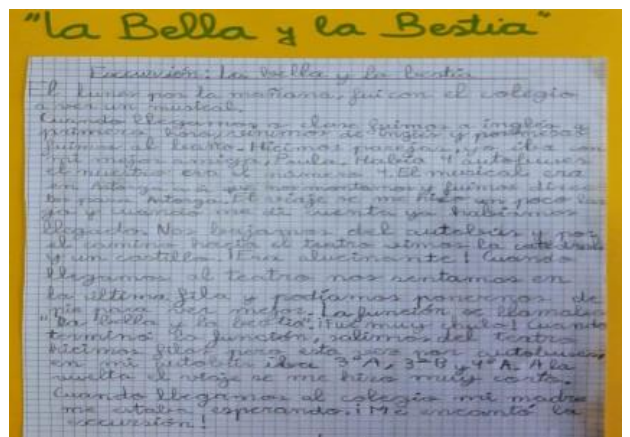 "La Bella y la Bestia"
Excursión: La bella y la bestia
El lunes por la mañana, fui con el colegio
a ver un musical.
Cuando llegamos a clase fuimos a inglés a
primera hora, de inglés y
fuimos al teatro. Hicimos parejas, yo iba con
mi mejor amiga, Paula. Había 4 autobuses
el nuestro era el número 4. El musical era
en Astorga, nos montamos y fuimos direc
tos para Astorga. El viaje se me hizo un poco lar
go y cuando me di cuenta ya habíamos
llegado. Nos bajamos del autobús y por
el camino hacia el teatro vimos la catedral
y un castillo. ¡Era alucinante! Cuando
llegamos al teatro nos sentamos en
la última fila y podíamos ponernos de
pie para ver mejor. La función se llamaba
"La bella y la bestia". ¡Fue muy chula! Cuando
terminó la función, salimos del teatro
hicimos filas por autobuses
en mi autobús iba 3ºA, 3ºB y 4ºA. A la
vuelta el viaje se me hizo muy corto.
Cuando llegamos al colegio mi madre
me estaba esperando. ¡Me encantó la
excursión!